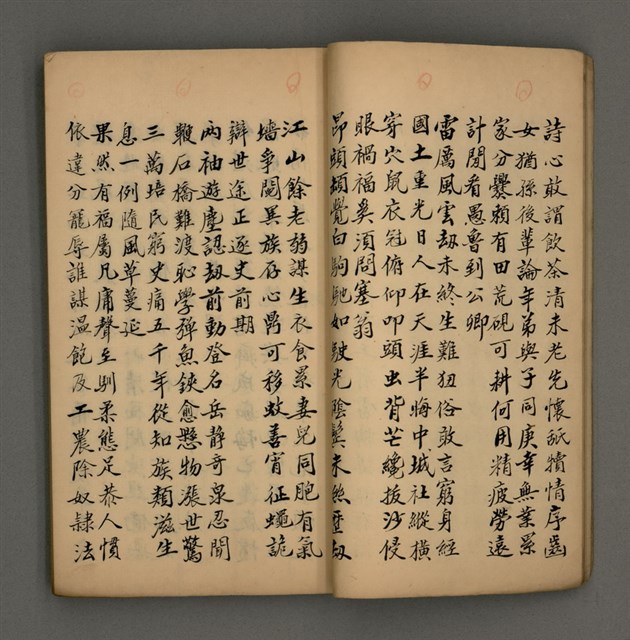 詩心敢謂飲茶清未老先懷舐犢情序齒
女猶孫後輩論年弟與子同庚幸無業累
家分爨頗有田荒硯可耕何用精疲勞遠
計閒看愚魯到公卿
雷厲風雲劫未終生難狃俗敢言窮身經
國土重光日人在天涯半悔中城社縱橫
穿穴鼠衣冠俯仰叩頭虫背芒纔拔沙侵
眼禍福奚須問塞翁
昂頭頻覺白駒馳如駛光陰鬢未絲歷劫
江山餘老弱謀生衣食累妻兒同胞有氣
墻爭鬩異族存心禺可移蚊善宵征蠅詭
辯世途正逐史前期
兩袖遊塵認劫前動登名岳靜奇泉忍聞
鞭石橋難渡恥學彈魚鋏愈懸物漲世驚
三萬培民窮史痛五千年從知族類滋生
息一例隨風草蔓延
果然有福屬凡庸聲至馴柔態足恭人慣
依違分寵辱誰謀溫飽及工農除奴隸法